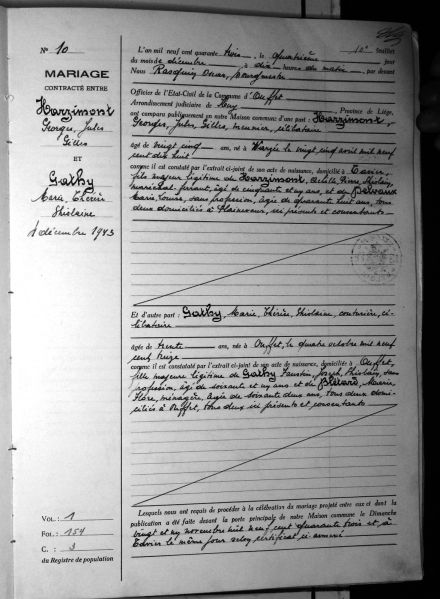 N° 10
MARIAGE
CONTRACTÉ ENTRE
Harzimont
Georges, Jules
Gilles
ET
Gathy
Marie, Thérèse
Ghislaine
4 décembre 1943
VOL. : 1
FOL. : 154
C. : 3
du Registre de population
10e feuillet
L'an mil neuf cent quarante trois, le quatrième jour
du mois de décembre à dix heures du matin, par devant
Nous Bourgmestre
Officier de l'Etat-Civil de la Commune d'Ouffet
Arrondissement judiciaire de Huy, Province de Liége,
ont comparu publiquement en notre Maison commune d'une part : Harzimont,
Georges, Jules, Gilles, célibataire
âgé de vingt cinq ans, né à le vingt cinq avril mil neuf
cent dix huit
comme il est constaté par l'extrait ci-joint de son acte de naissance, domicilié à
fils majeur légitime de Harzimont,
maréchal ferrant, âgé de cinquante et un ans, et de
Marie, Louise, sans profession, âgée de quarante huit ans, tous
deux domiciliés à ci présents et consentants
Et d'autre part : Gathy, Marie, Thérèse, Ghislaine, couturière, cé-
libataire
âgée de trente ans, née à Ouffet, le quatre octobre mil neuf
cent treize
comme il est constaté par l'extrait ci-joint de son acte de naissance, domiciliée à Ouffet,
fille majeure légitime de Gathy Joseph, Ghislain, sans
profession, âgé de soixante et un ans et de Marie
ménagère, âgée de soixante deux ans, tous deux domi-
ciliés à Ouffet, tous deux ici présents et consentants
Lesquels nous ont requis de procéder à la célébration du mariage projeté entre eux et dont la
publication a été faite devant la porte principale de notre Maison commune Dimanche
vingt et un novembre mil neuf cent quarante trois et à
le même jour selon certificat ci-annexé